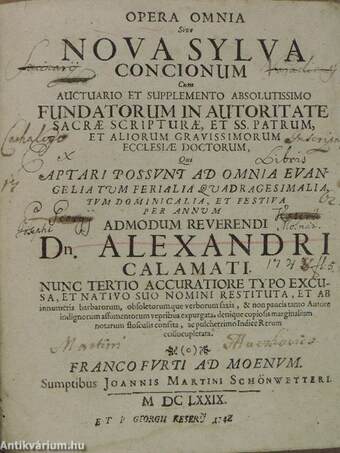 OPERA OMNIA
Sive
NOVA SYLVA
CONCIONUM
Cum
AUCTUARIO ET SUPPLEMENTO ABSOLUTISSIMO
FUNDATORUM IN AUTORITATE
SACRÆ SCRIPTURÆ, ET SS. PATRUM,
ET ALIORUM GRAVISSIMORUM
ECCLESIÆ DOCTORUM,
Qui
APTARI POSSVNT AD OMNIA EVAN-
GELIA TUM FERIALIA QVADRAGESIMALIA,
TVM DOMINICALIA, ET FESTIVA
PER ANNUM
ADMODUM REVERENDI
Dn. ALEXANDRI
CALAMATI.
NUNC TERTIO ACCURATIORE TYPO EXCU-
SA, ET NATIVO SUO NOMINI RESTITUTA, ET AB
innumeris barbarorum, obsoletorumque verborum
indignorum assumentorum vepribus expurgata, denique copiosa marginalium
notarum flosculis consita, ac pulcherrimo Indice Rerum
collocupletata.
Martini
(o)
FRANCOFURTI AD MOENUM.
Sumptibus JOANNIS MARTINI SCHÖNWETTERI.
M DC LXXIX.
ET P GEORGII
Antikvárium.hu